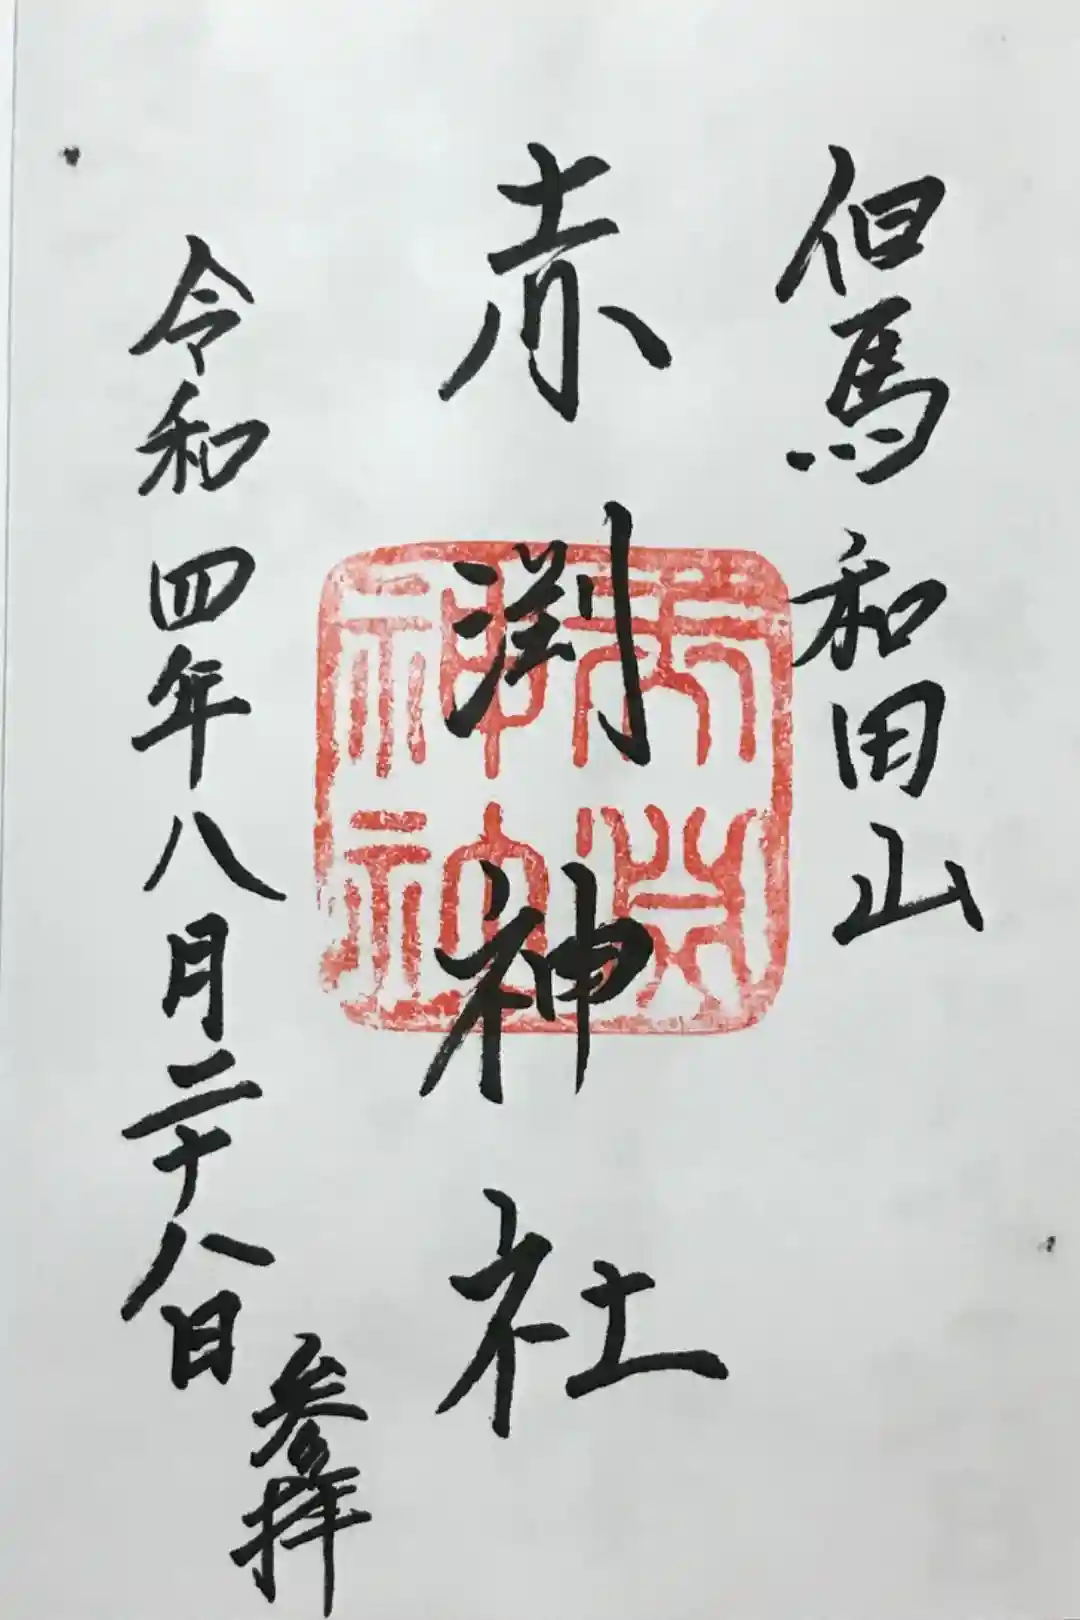 但馬 和田山
赤渕神社
令和四年八月二十八日
参拝